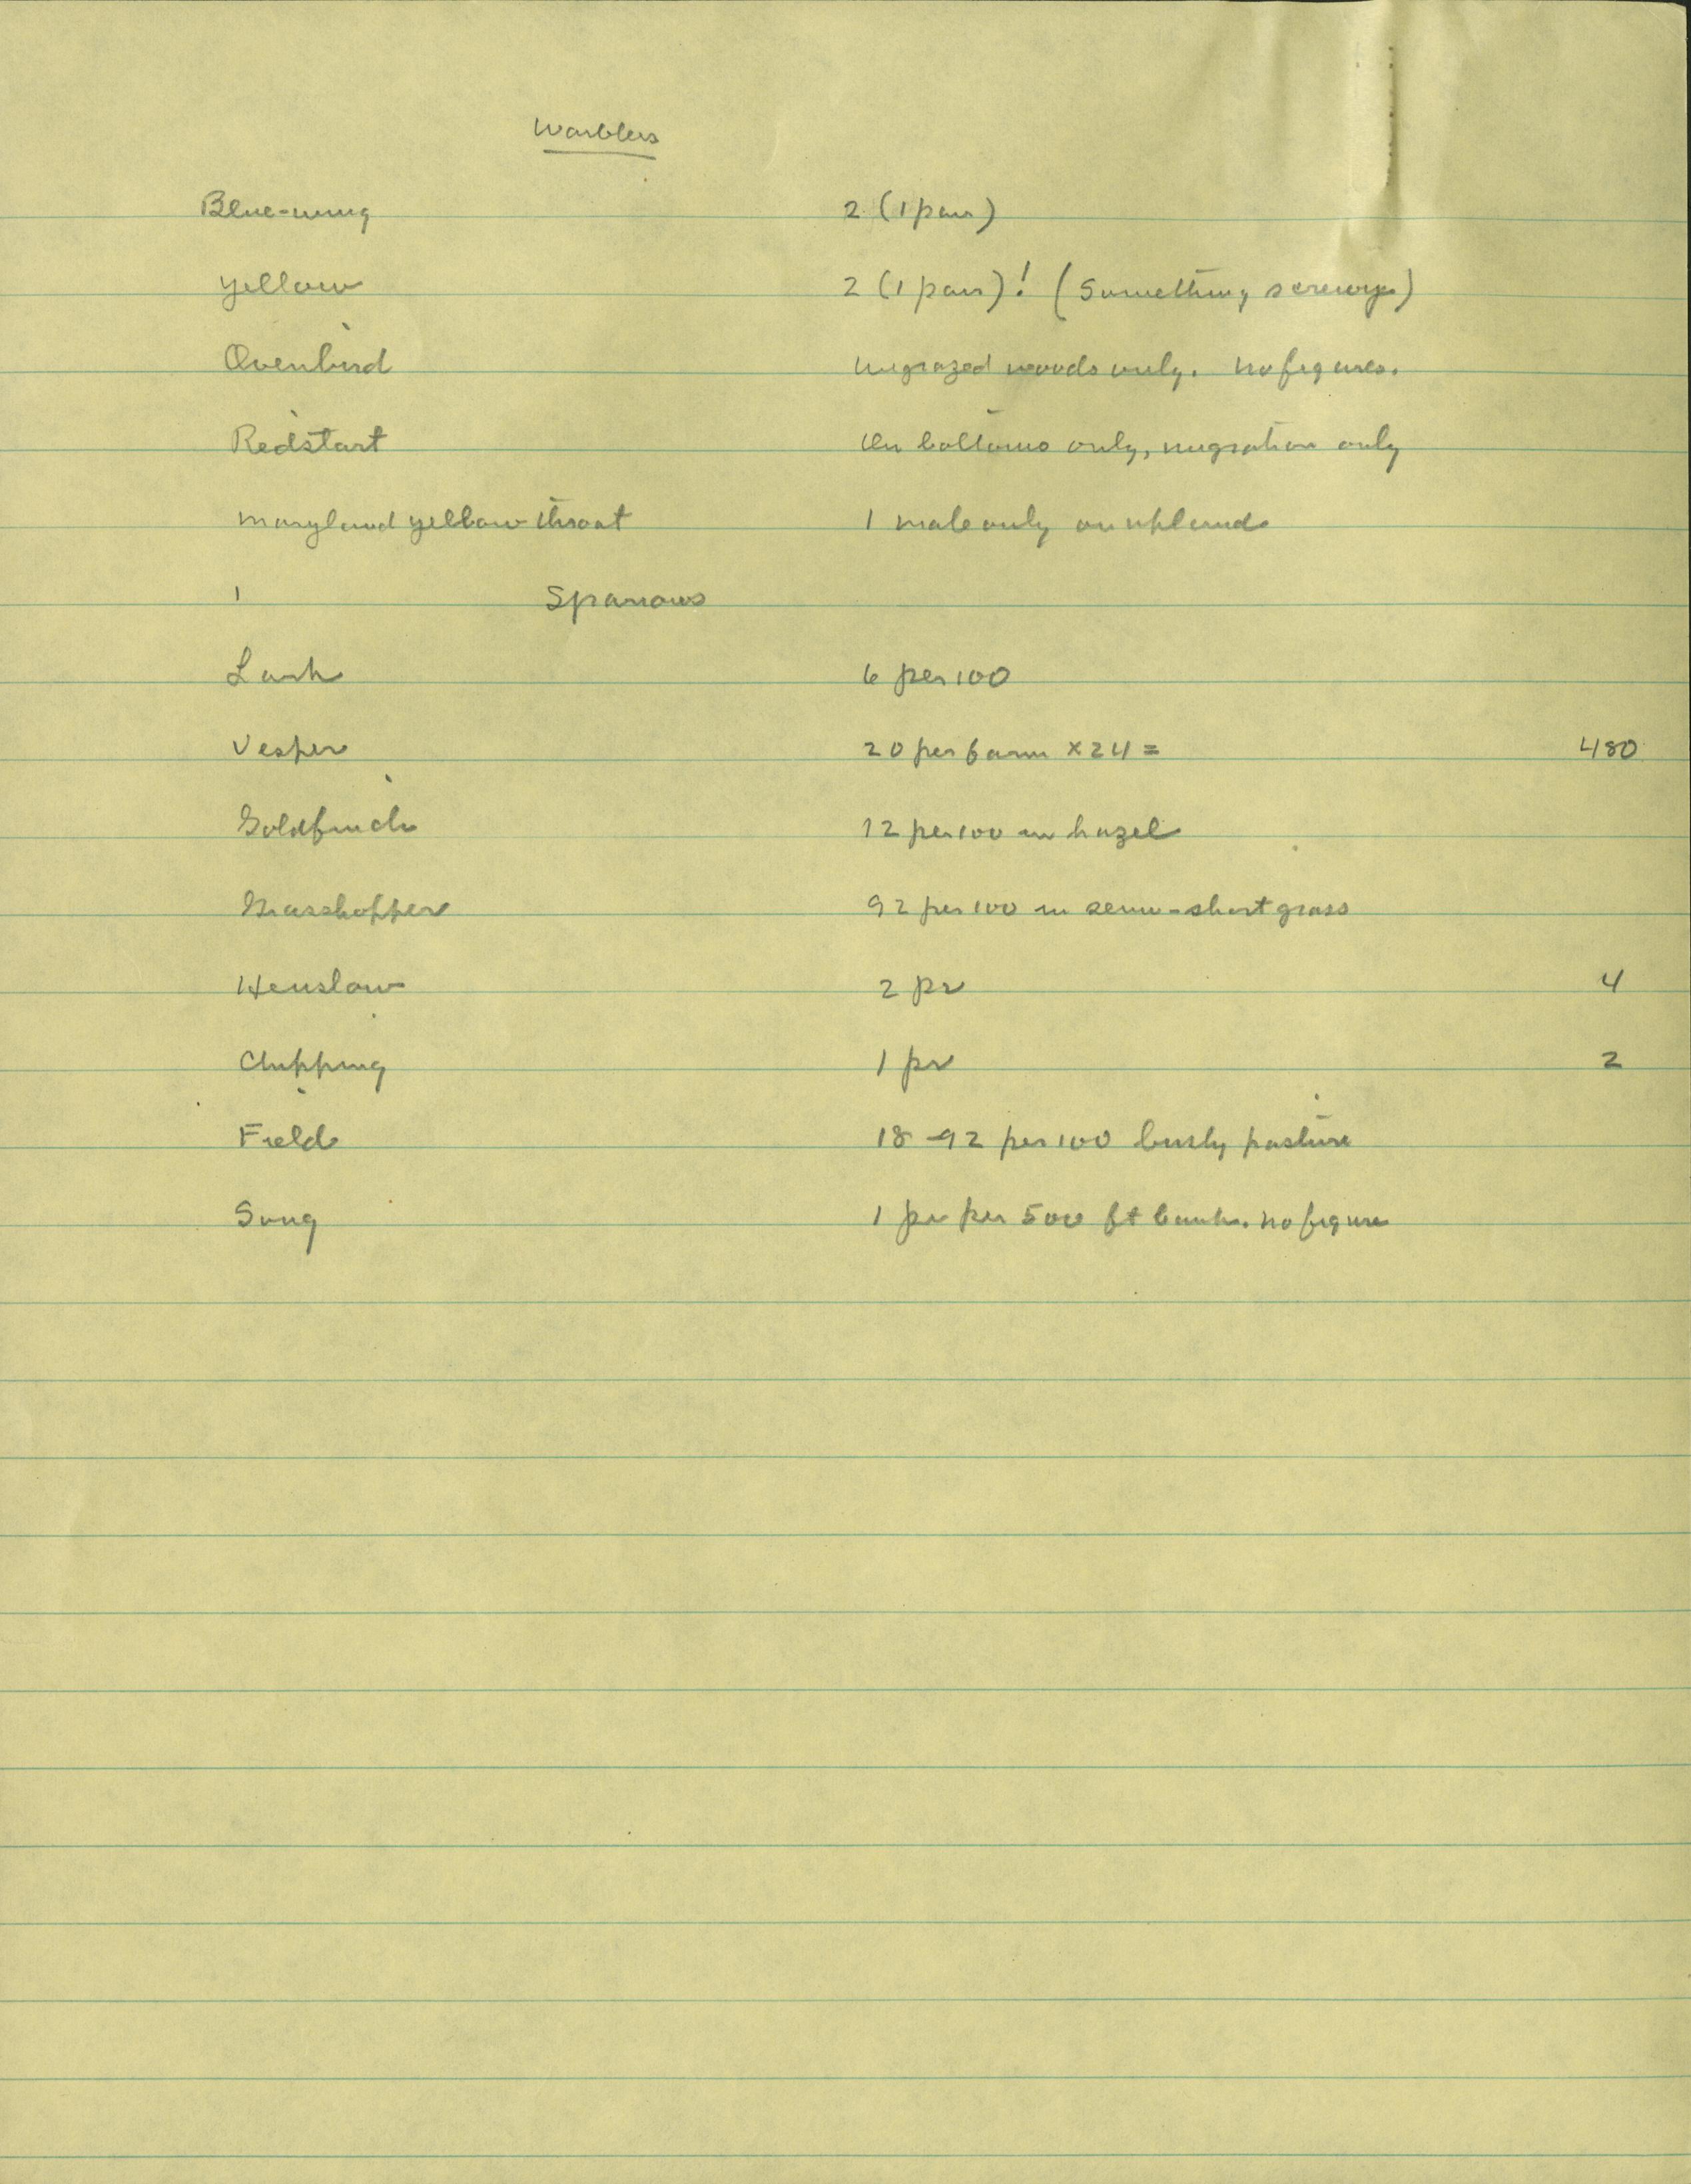 Warblers
Blue-wing 2 (1 pair)
Yellow 2 (1 pair)! (Something screwy)
Ovenbird Ungrazed woods only. No figures.
Redstart On bottoms only, migration only
Maryland yellow throat 1 male only on upland
Sparrows
Lark 6 per 100
Vesper 20 per farm x 24 = 480
Goldfinch 12 per 100 in hazel
Grasshopper 92 per 100 in semi-short grass
Henslow 2 pr 4
Chipping 1 pr 2
Field 18-92 per 100 bushy pasture
Song 1 pr per 500 ft bank. No figure